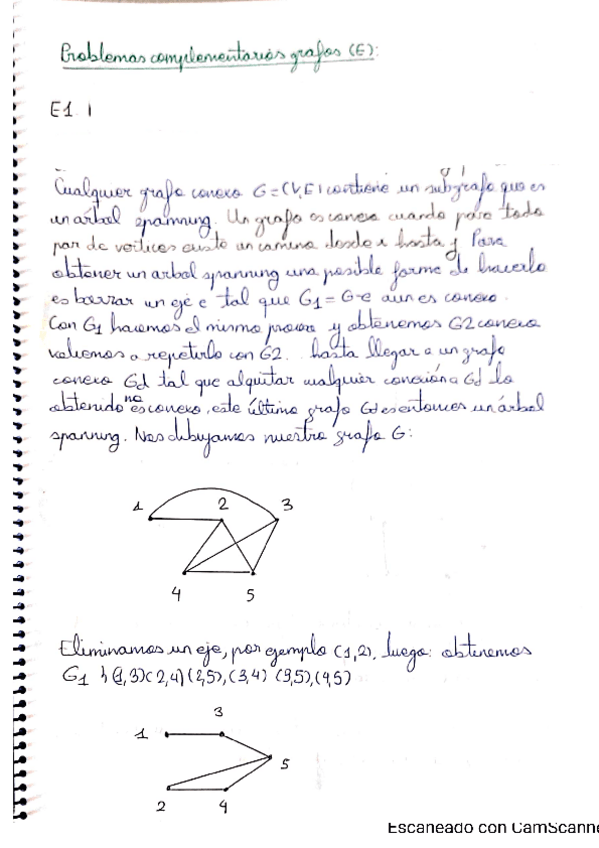 Problemas complementarios grafos (E):
E1. 1
Cualquier grafo conexo G=(V,E) contiene un subgrafo que es
un árbol spanning. Un grafo es conexo cuando para todo
par de vertices existe un camino desde x hasta y Para
obtener un arbol spanning una posible forma de hacerlo
es borrar un eje e tal que G1 = G-e aun es conexo.
Con G1 hacemos el mismo proceso y obtenemos G2 conexo
volvemos a repetirlo con G2... hasta llegar a un grafo
conexo Gd tal que al quitar cualquier conexión a Gd lo
obtenido no es conexo, este último grafo Gd es entonces un árbol
spanning. Nos dibujamos nuestro grafo G:
1 2 3
4 5
Eliminamos un eje, por ejemplo (1,2), luego: obtenemos
G1 (1,3)(2,4)(2,5),(3,4) (3,5),(4,5)
3
1
5
2 4
Escaneado con CamScanne